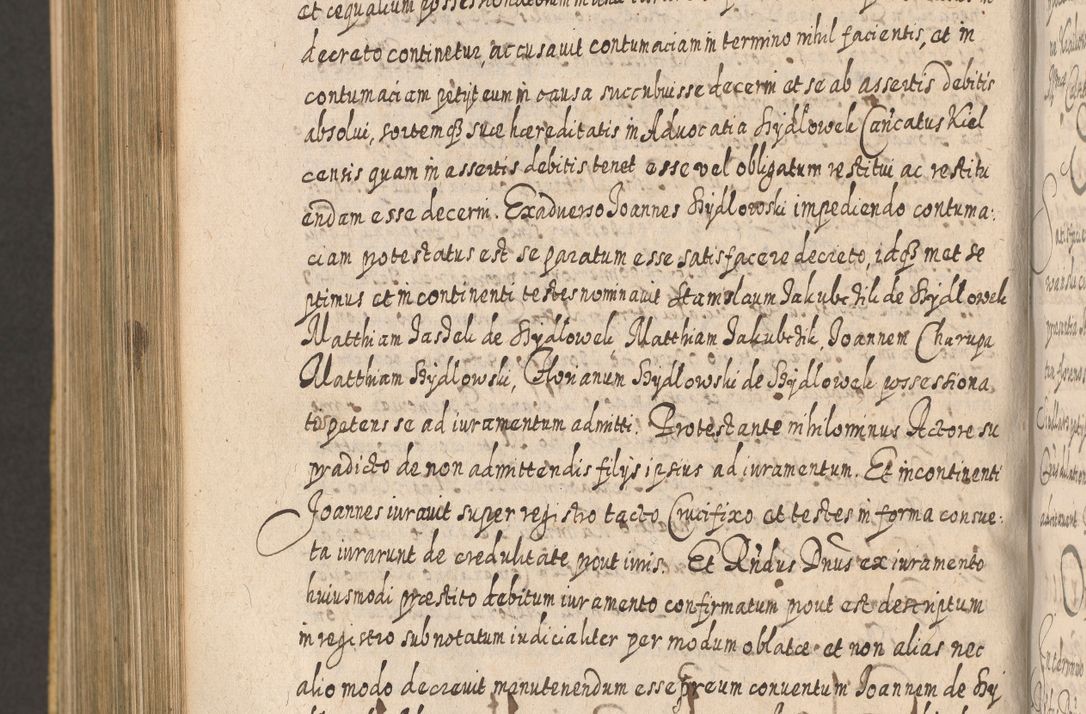 et cequalium possessionatorum
decreto continetur, accusavit contumaciam in termino nihil facientis, et in
contumaciam petijt eum in causa succubuisse decerni et se ab assertis debitis
absolui, sortemqз suæ hæreditatis in Advocatia Hÿdlowek Cancatus Kiel
censis quam in assertis debitis tenet esse vel obligatum restitui ac restitu
endam esse decerni. Ex adverso Joannes Hÿdlowski impediendo contuma:
ciam protestatus est se paratum esse satisfacere decreto, idqз met se
ptimus et in continenti testes nominavit Stanislaum Jakubczik de Hÿdlowek
Matthiam Jasdek de Hÿdlowek Matthiam Jakubczik, Joannem Charupa
Matthiam Hÿdlowski, Florianum Hÿdlowski de Hÿdlowek possessiona
tos petens se ad iuramentum admitti. Protestante nihilominus Actore su
pradicto de non admittendis filijs ipsius ad iuramentum. Et incontinenti
Joannes iuravit super registro tacto Crucifixo et testes in forma consue:
ta iurarunt de credulitate prout iuris. Et Rndus Dnus ex iuramento
huiusmodi præstito debitum iuramento confirmatum prout est descriptum
in registro subnotatum iudicialiter per modum oblatæ et non alias nec
alio modo decrevit manutenendum esse preum conventum Joannem de Hÿ